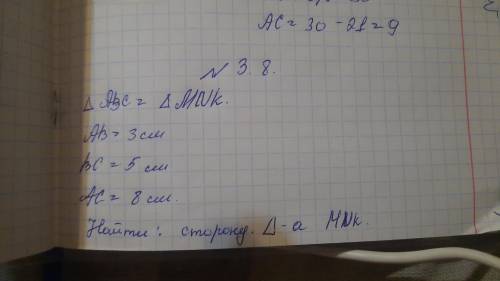 AC = 30 - 21 = 9
N 3. 8.
Δ ABC = Δ MNK.
AB = 3 см
BC = 5 см
AC = 8 см.
Найти: сторону. Δ-а MNK.